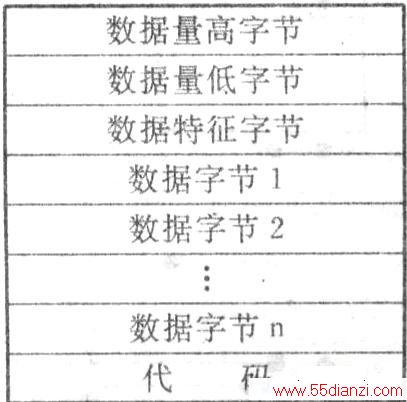 数据量高字节
数据量低字节
数据特征字节
数据字节1
数据字节2
⋮
数据字节n
代 码
www.55dianzi.com